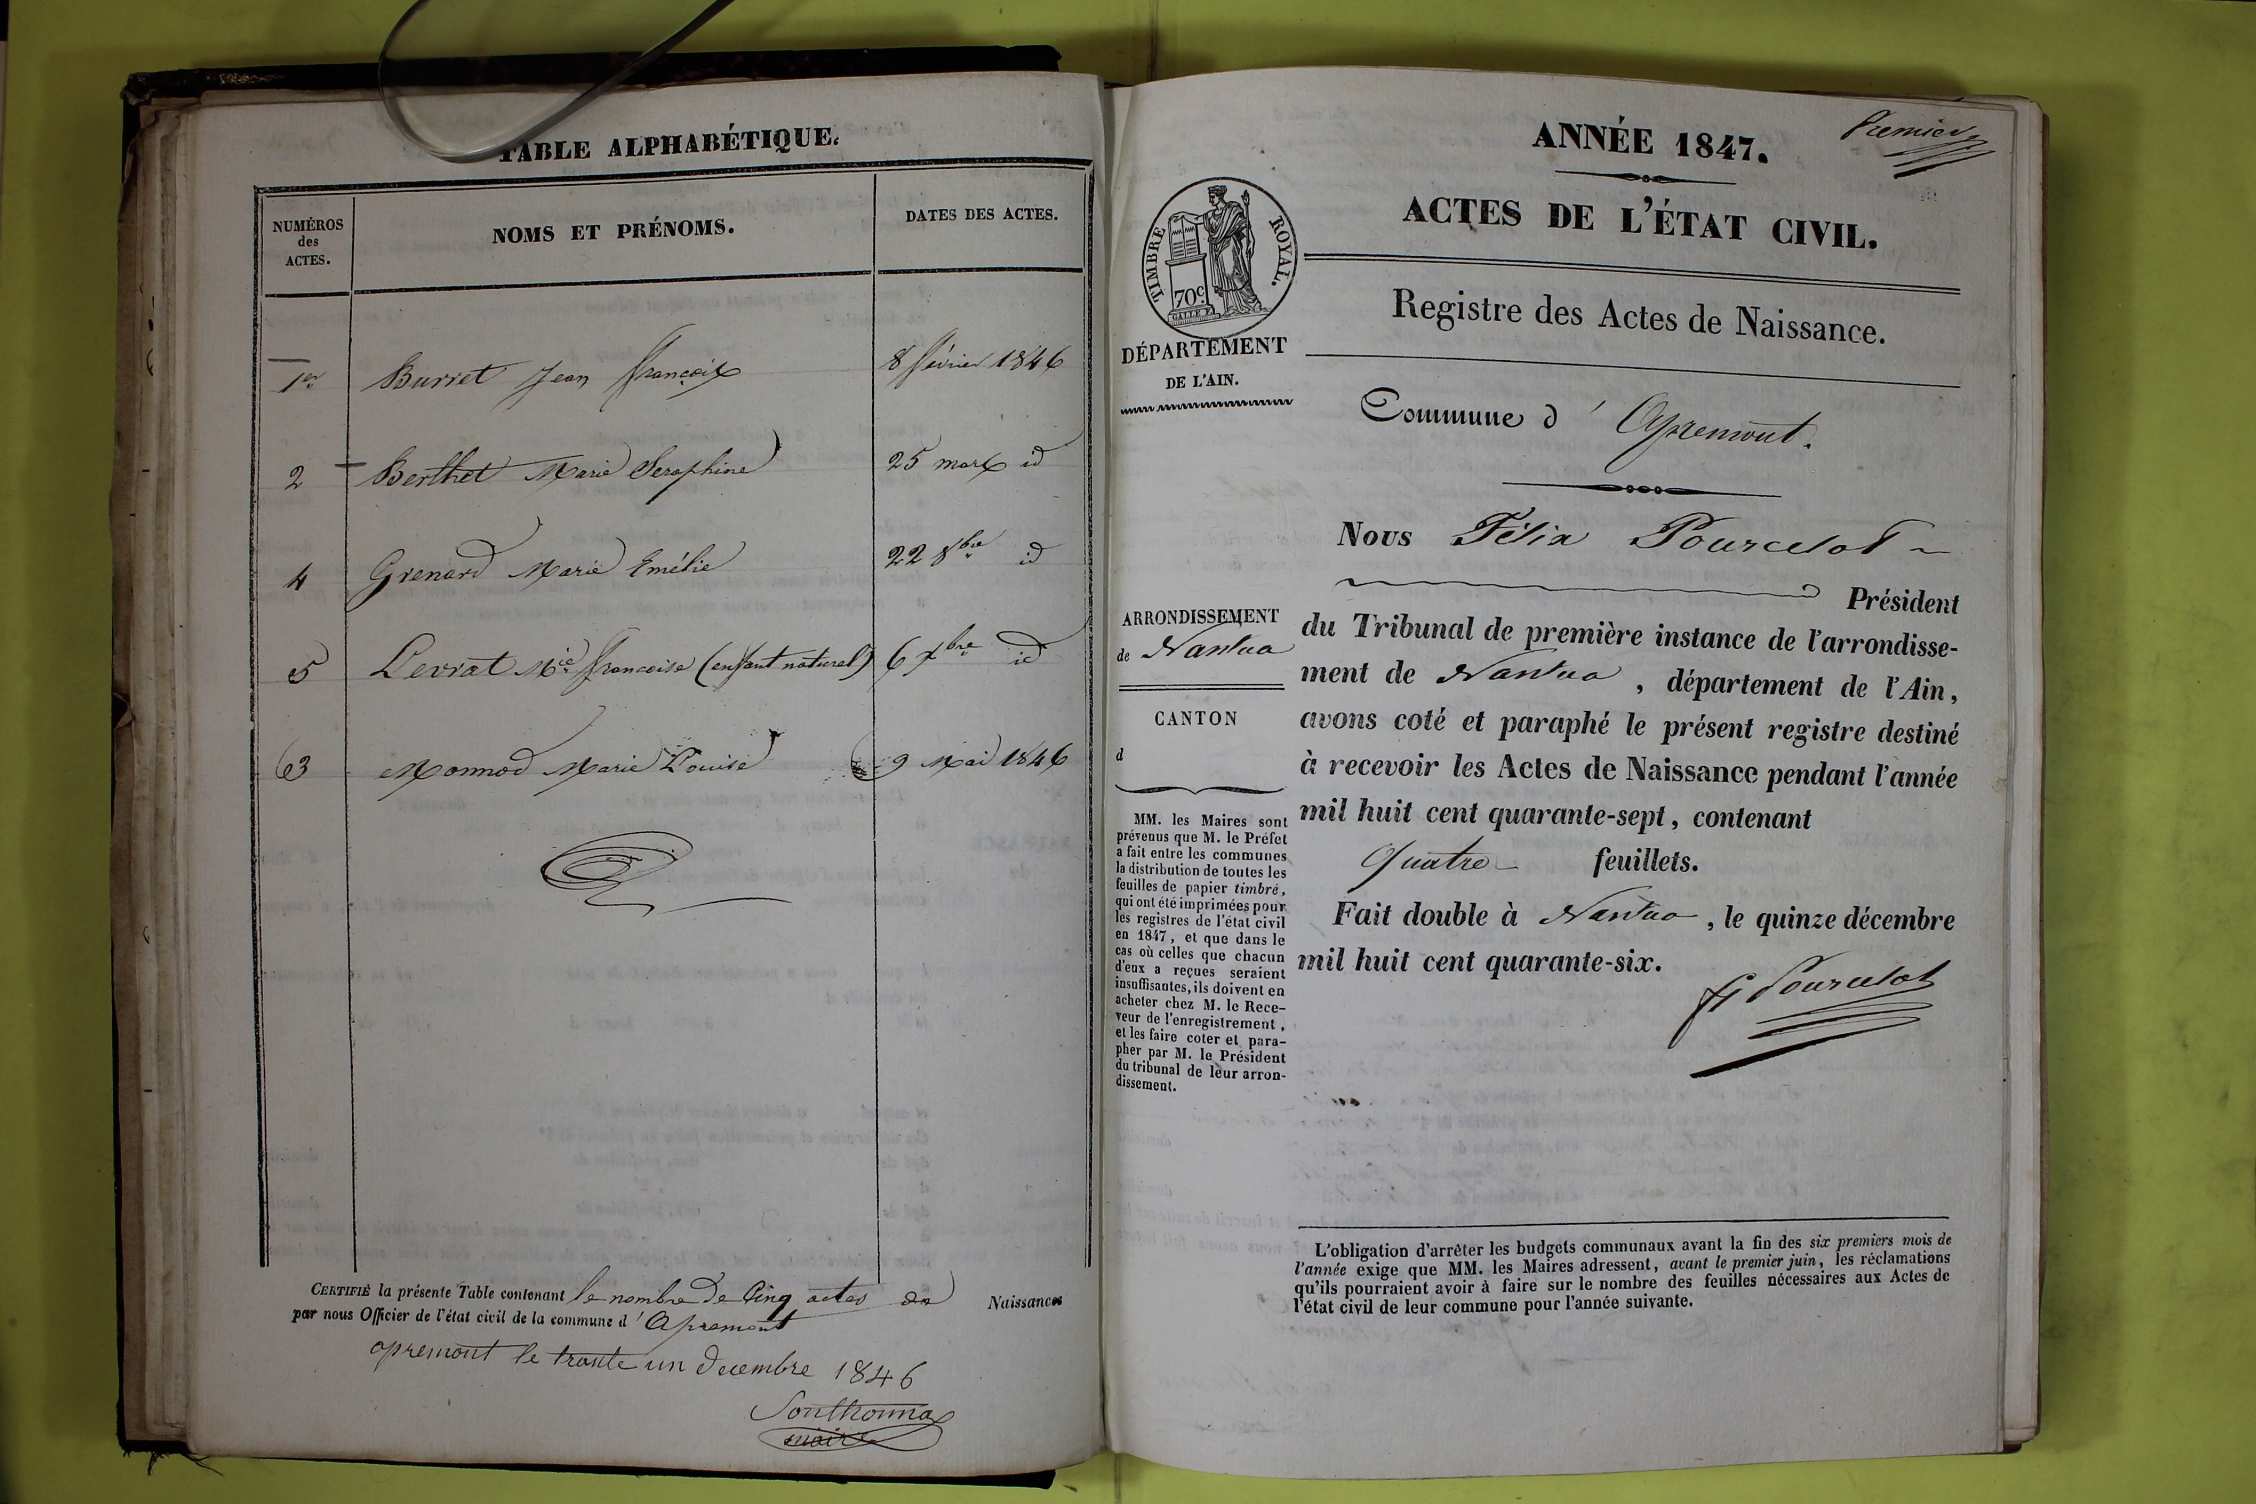 TABLE ALPHABÉTIQUE.
NUMÉROS
des
ACTES.
NOMS ET PRÉNOMS.
DATES DES ACTES.
1er Burret Jean françois 8 février 1846
2 Berthet Marie Seraphine 25 mars id
4 Grenard Marie Emélie 22 8bre id
5 Levrat Mie francoise (enfant naturel) 6 xbre id
3 Monnod Marie Louise 9 Mai 1846
CERTIFIÉ la présente Table contenant le nombre de Cinq actes de Naissances
par nous Officier de l'état civil de la commune d'Apremont
apremont le trante un decembre 1846
Sonthonnax
maire
Premier
ANNÉE 1847.
ACTES DE L'ÉTAT CIVIL.
TIMBRE ROYAL.
70c
Registre des Actes de Naissance.
DÉPARTEMENT
DE L'AIN.
Commune d'Apremont.
Nous Félix Pourcelot
Président
du Tribunal de première instance de l'arrondisse-
ment de Nantua, département de l'Ain,
avons coté et paraphé le présent registre destiné
à recevoir les Actes de Naissance pendant l'année
mil huit cent quarante-sept, contenant
quatre feuillets.
Fait double à Nantua, le quinze décembre
mil huit cent quarante-six.
F Pourcelot
ARRONDISSEMENT
de Nantua
CANTON
d
MM. les Maires sont
prévenus que M. le Préfet
a fait entre les communes
la distribution de toutes les
feuilles de papier timbré,
qui ont été imprimées pour
les registres de l'état civil
en 1847, et que dans le
cas où celles que chacun
d'eux a reçues seraient
insuffisantes, ils doivent en
acheter chez M. le Rece-
veur de l'enregistrement,
et les faire coter et para-
pher par M. le Président
du tribunal de leur arron-
dissement.
L'obligation d'arrêter les budgets communaux avant la fin des six premiers mois de
l'année exige que MM. les Maires adressent, avant le premier juin, les réclamations
qu'ils pourraient avoir à faire sur le nombre des feuilles nécessaires aux Actes de
l'état civil de leur commune pour l'année suivante.